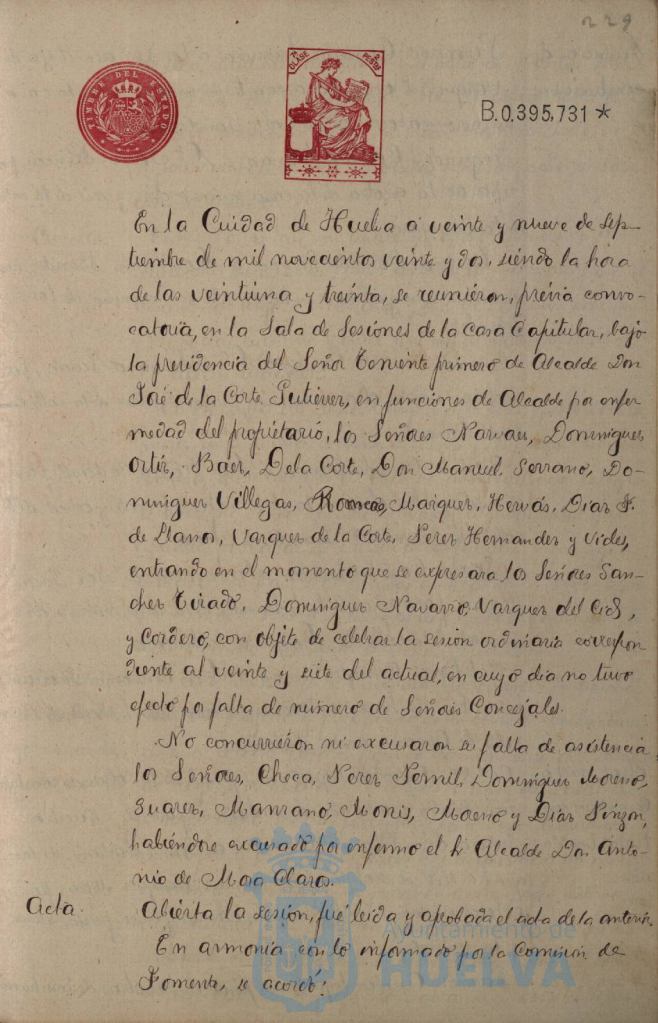 229
TIMBRE DEL ESTADO
7ª CLASE 2 PESETAS
B.0.395,731 *
En la Cuidad de Huelva a veinte y nueve de sep-
tiembre de mil novecientos veinte y dos, siendo la hora
de las veintiuna y treinta, se reunieron, previa convo-
catoria, en la Sala de Sesiones de la Casa Capitular, bajo
la presidencia del Señor Teniente primero de Alcalde Don
José de la Corte Gutiérrez, en funciones de Alcalde por enfer
medad del propietario, los Señores Narvaez, Dominguez
Ortiz, Baez, De la Corte, Don Manuel Serrano, Do-
minguez Villegas, Maiquez, Hervás, Diaz F.
de Llanos, Vazquez de la Corte, Perez Hernandez y Vides,
entrando en el momento que se expresara los Señores San-
chez Tirado, Dominguez Navarro, Vazquez del Cid,
y Cordero, con objeto de celebrar la sesión ordinaria correspon
diente al veinte y siete del actual, en cuyo dia no tuvo
efecto por falta de número de Señores Concejales.
No concurrieron ni excusaron su falta de asistencia
los Señores, Checa, Perez Pernil, Dominguez Moreno,
Suarez, Manzano, Monis, Moreno y Diaz Pinzon,
habiéndose excusado por enfermo el Sr Alcalde Don Anto-
nio de Mora Claros.
Acta. Abierta la sesión, fué leida y aprobada el acta de la anterior.
En armonia con lo informado por la Comisión de
Fomento, se acordó:
Ayuntamiento de
HUELVA